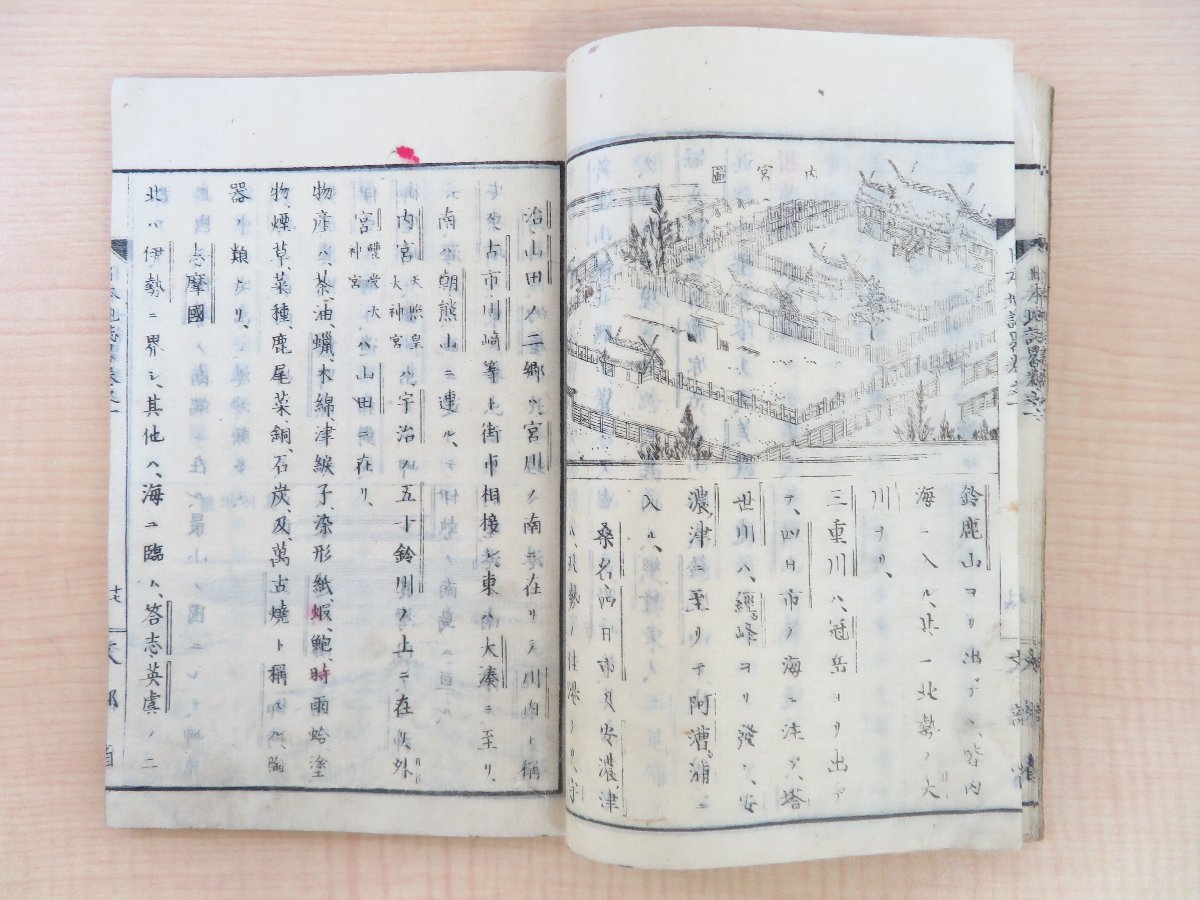 内宮圖
鈴鹿山ヨリ出デヽ皆内
海ニ入ル、共ニ北勢ノ大
川ナリ、
三重川ハ、冠岳ヨリ出デ
ナ、四日市ノ海ニ注グ、塔
世川ハ、經峰ヨリ發シ、安
濃津ニ至リテ阿漕浦ニ
入ル、
桑名、四日市及安濃津
勢ノ佳港ナリ、宇
治山田ノ二郷ハ宮川ノ南ニ在リテ川内ト稱
古市川崎等ト街市相接シ、東南大湊ニ至リ、
南ハ朝熊山ニ連ル、
内宮天照皇大神宮ハ、宇治ノ五十鈴川ノ上ニ在リ、外
宮豐受大神宮ハ山田ニ在リ、
物産ハ、茶、油、蠟、木綿、津綟子、染形紙、蝦、鮑、時雨蛤、塗
物、煙草、菜種、鹿尾菜、銅、石炭、及萬古燒ト稱スル、陶
器ノ類ナリ、
志摩國
北ハ伊勢ニ界シ、其他ハ、海ニ臨ム、答志英虞ノ二
日本地誌略卷之一
十六
文部省